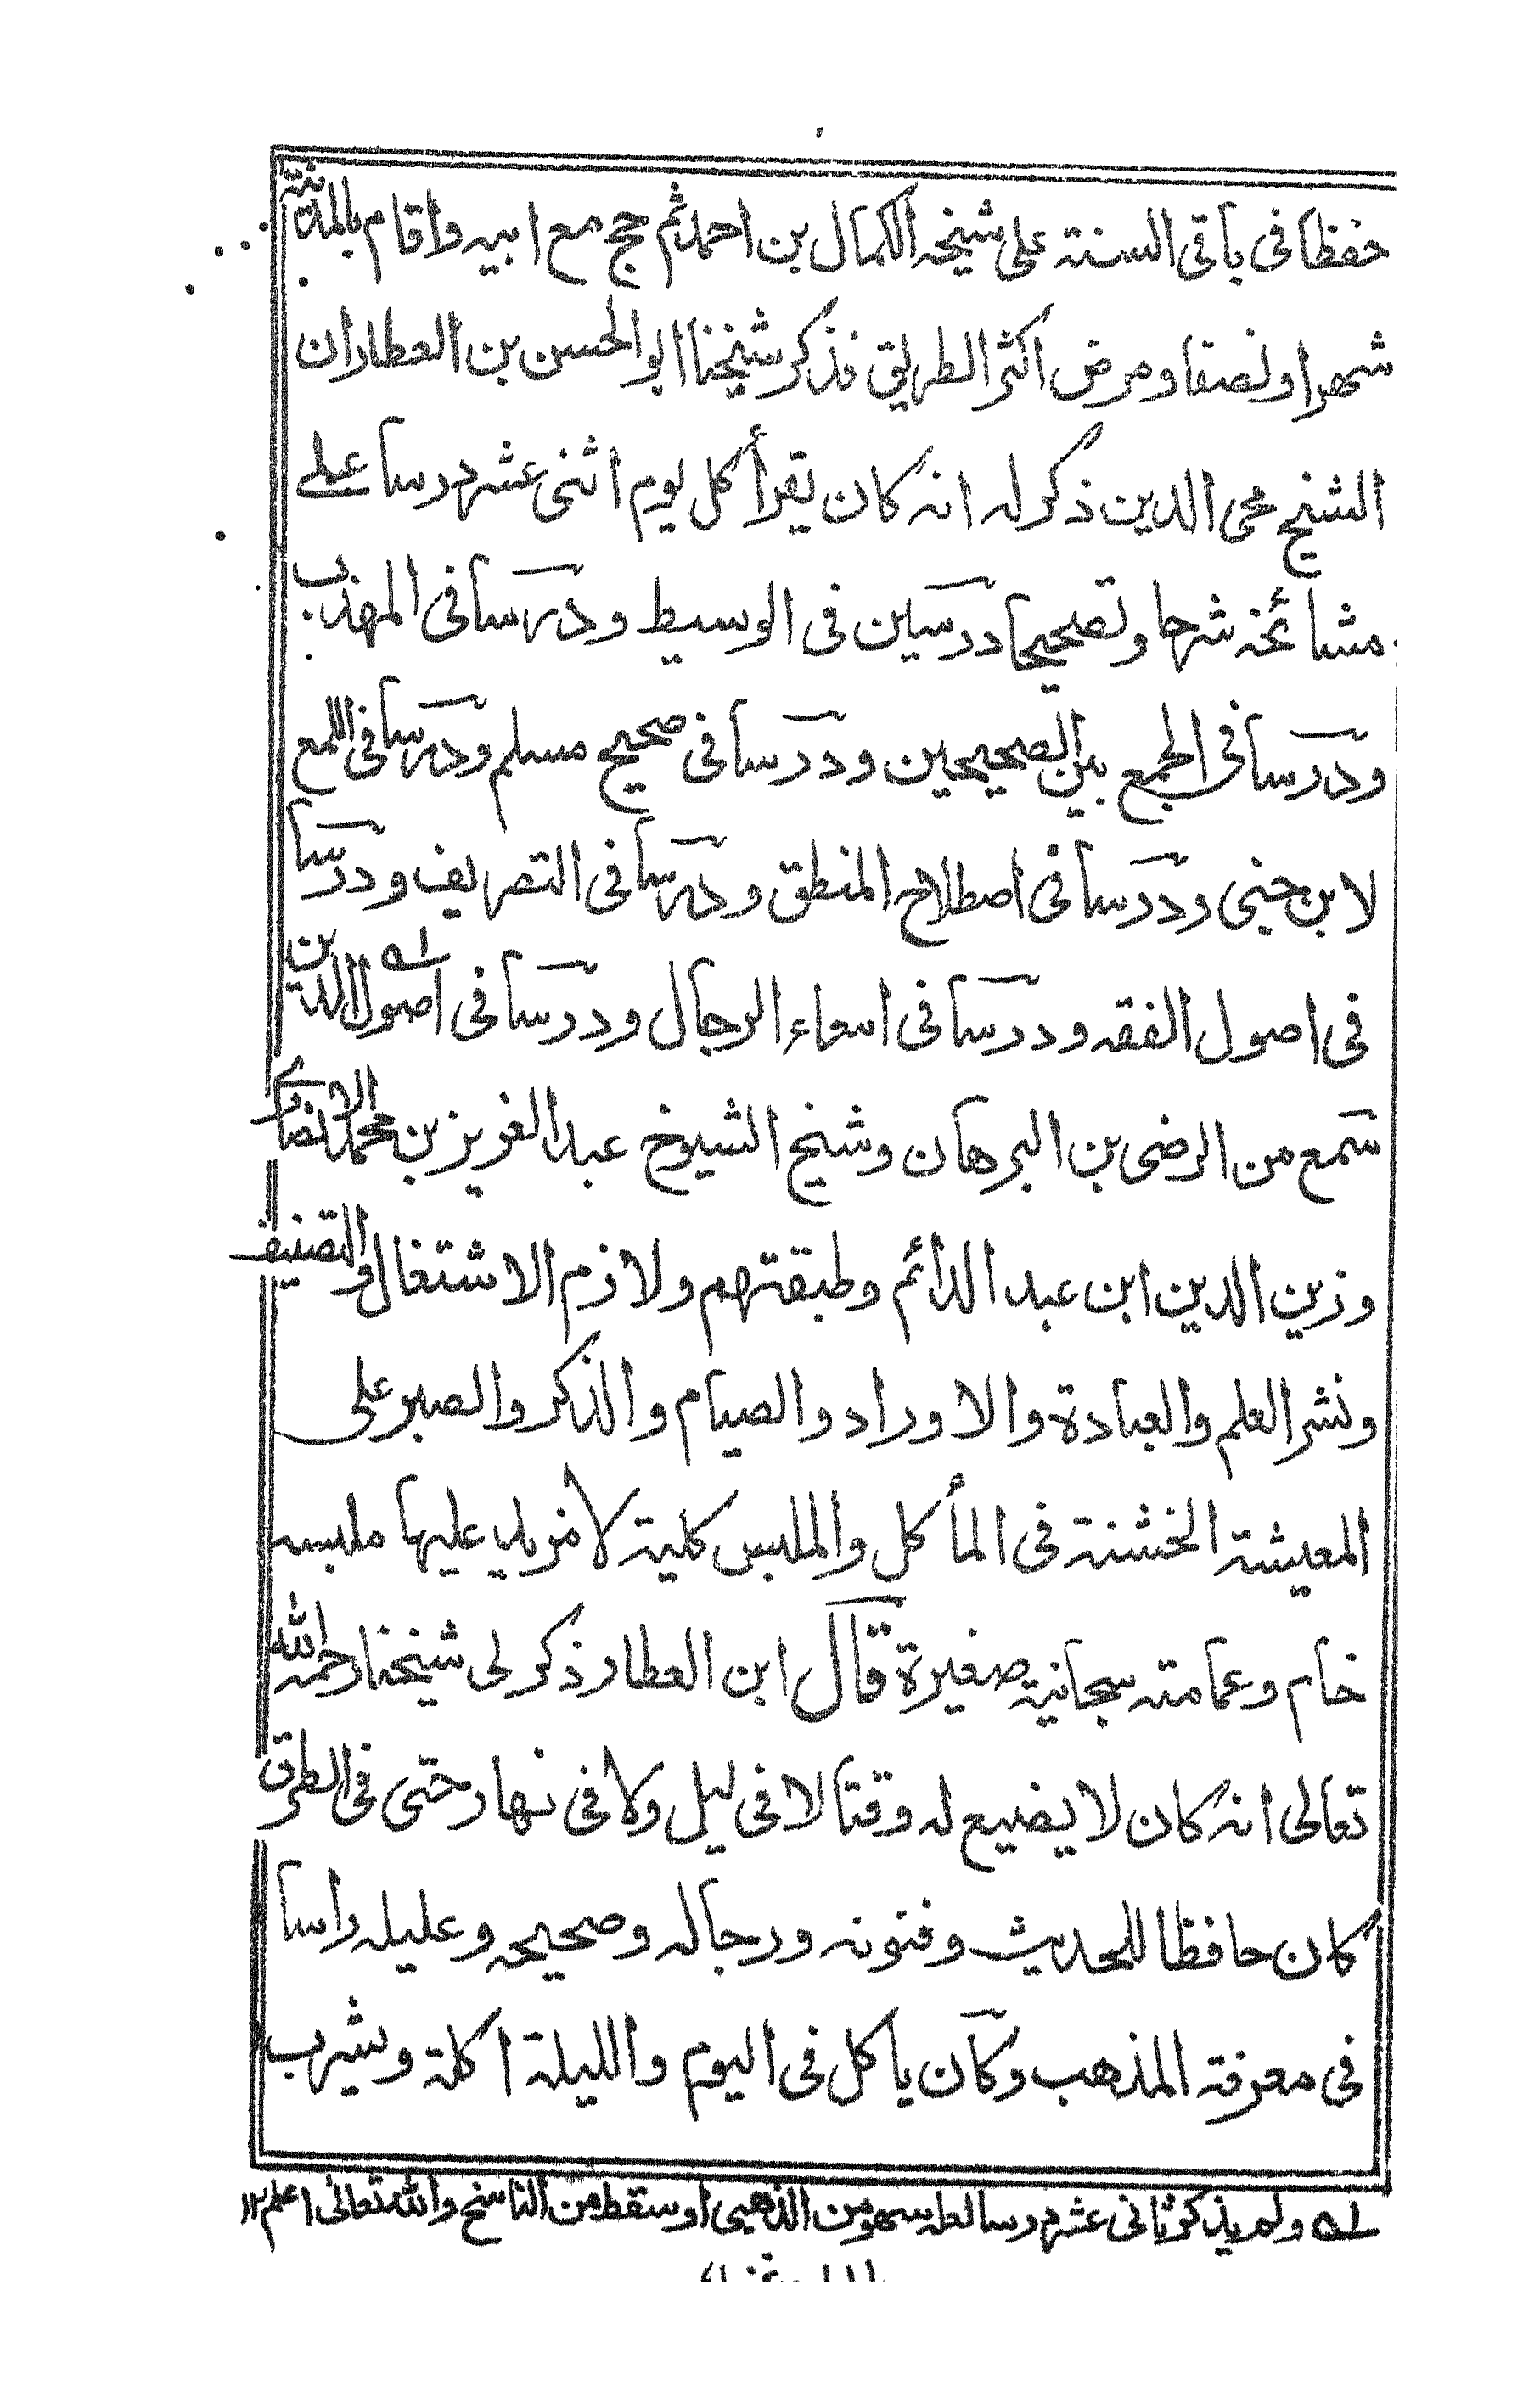 حفظا فى باقى السنة على شيخه الكمال بن احمد ثم حج مع ابيه واقام بالمدينة
شهرا ونصفا ومرض اكثر الطريق فذكر شيخنا ابو الحسن بن العطار ان
الشيخ محى الدين ذكر له انه كان يقرأ كل يوم اثنى عشر درسا على
مشائخه شرحا وتصحيحا درسين فى الوسيط ودرسا فى المهذب
ودرسا فى الجمع بين الصحيحين ودرسا فى صحيح مسلم ودرسا فى اللمع
لابن جنى ودرسا فى اصطلاح المنطق ودرسا فى التصريف ودرسا
فى اصول الفقه ودرسا فى اسماء الرجال ودرسا فى اصول الدين ١ه
سمع من الرضى بن البرهان وشيخ الشيوخ عبد العزيز بن محمد الانصارى
وزين الدين ابن عبد الدائم وطبقتهم ولازم الاشتغال والتصنيف
ونشر العلم والعبادة والاوراد والصيام والذكر والصبر على
المعيشة الخشنة فى المأكل والملبس كلية لا مزيد عليها ملبسه
خام وعمامته سبجانية صغيرة قال ابن العطار ذكر لى شيخنا رحمه الله
تعالى انه كان لا يضيع له وقتا لا فى ليل ولا فى نهار حتى فى الطرق
كان حافظا للحديث وفنونه ورجاله وصحيحه وعليله راسا
فى معرفة المذهب وكان ياكل فى اليوم والليلة اكلة ويشرب
١ه ولم يذكر ثانى عشر درسا لعله سهو من الذهبى او سقط من الناسخ والله تعالى اعلم ١٢